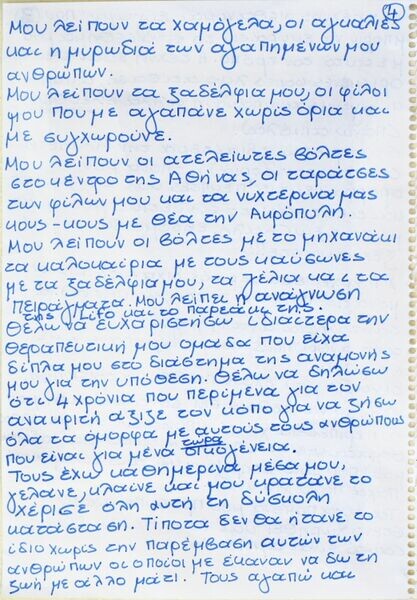 4
Μου λείπουν τα χαμόγελα, οι αγκαλιές
και η μυρωδιά των αγαπημένων μου
ανθρώπων.
Μου λείπουν τα ξαδέλφια μου, οι φίλοι
μου που με αγαπάνε χωρίς όρια και
με συγχωρούνε.
Μου λείπουν οι ατελείωτες βόλτες
στο κέντρο της Αθήνας, οι ταράτσες
των φίλων μου και τα νυχτερινά μας
κους-κους με θέα την Ακρόπολη.
Μου λείπουν οι βόλτες με το μηχανάκι
τα καλοκαίρια με τους καύσωνες
με τα ξαδέλφια μου, τα γέλια και τα
πειράγματα. Μου λείπει η ανάγνωση
της Lifo και το παρεάκι της.
Θέλω να ευχαριστήσω ιδιαίτερα την
θεραπευτική μου ομάδα που είχα
δίπλα μου στο διάστημα της αναμονής
μου για την υπόθεση. Θέλω να δηλώσω
ότι 4 χρόνια που περίμενα για τον
ανακριτή άξιζε τον κόπο για να ζήσω
όλα τα όμορφα με αυτούς τους ανθρώπους
που είναι για μένα τώρα οικογένεια.
Τους έχω καθημερινά μέσα μου,
γελάνε, κλαίνε και μου κρατάνε το
χέρι σε όλη αυτή τη δύσκολη
κατάσταση. Τίποτα δεν θα ήτανε το
ίδιο χωρίς την παρέμβαση αυτών των
ανθρώπων οι οποίοι με έκαναν να δω τη
ζωή με άλλο μάτι. Τους αγαπώ και